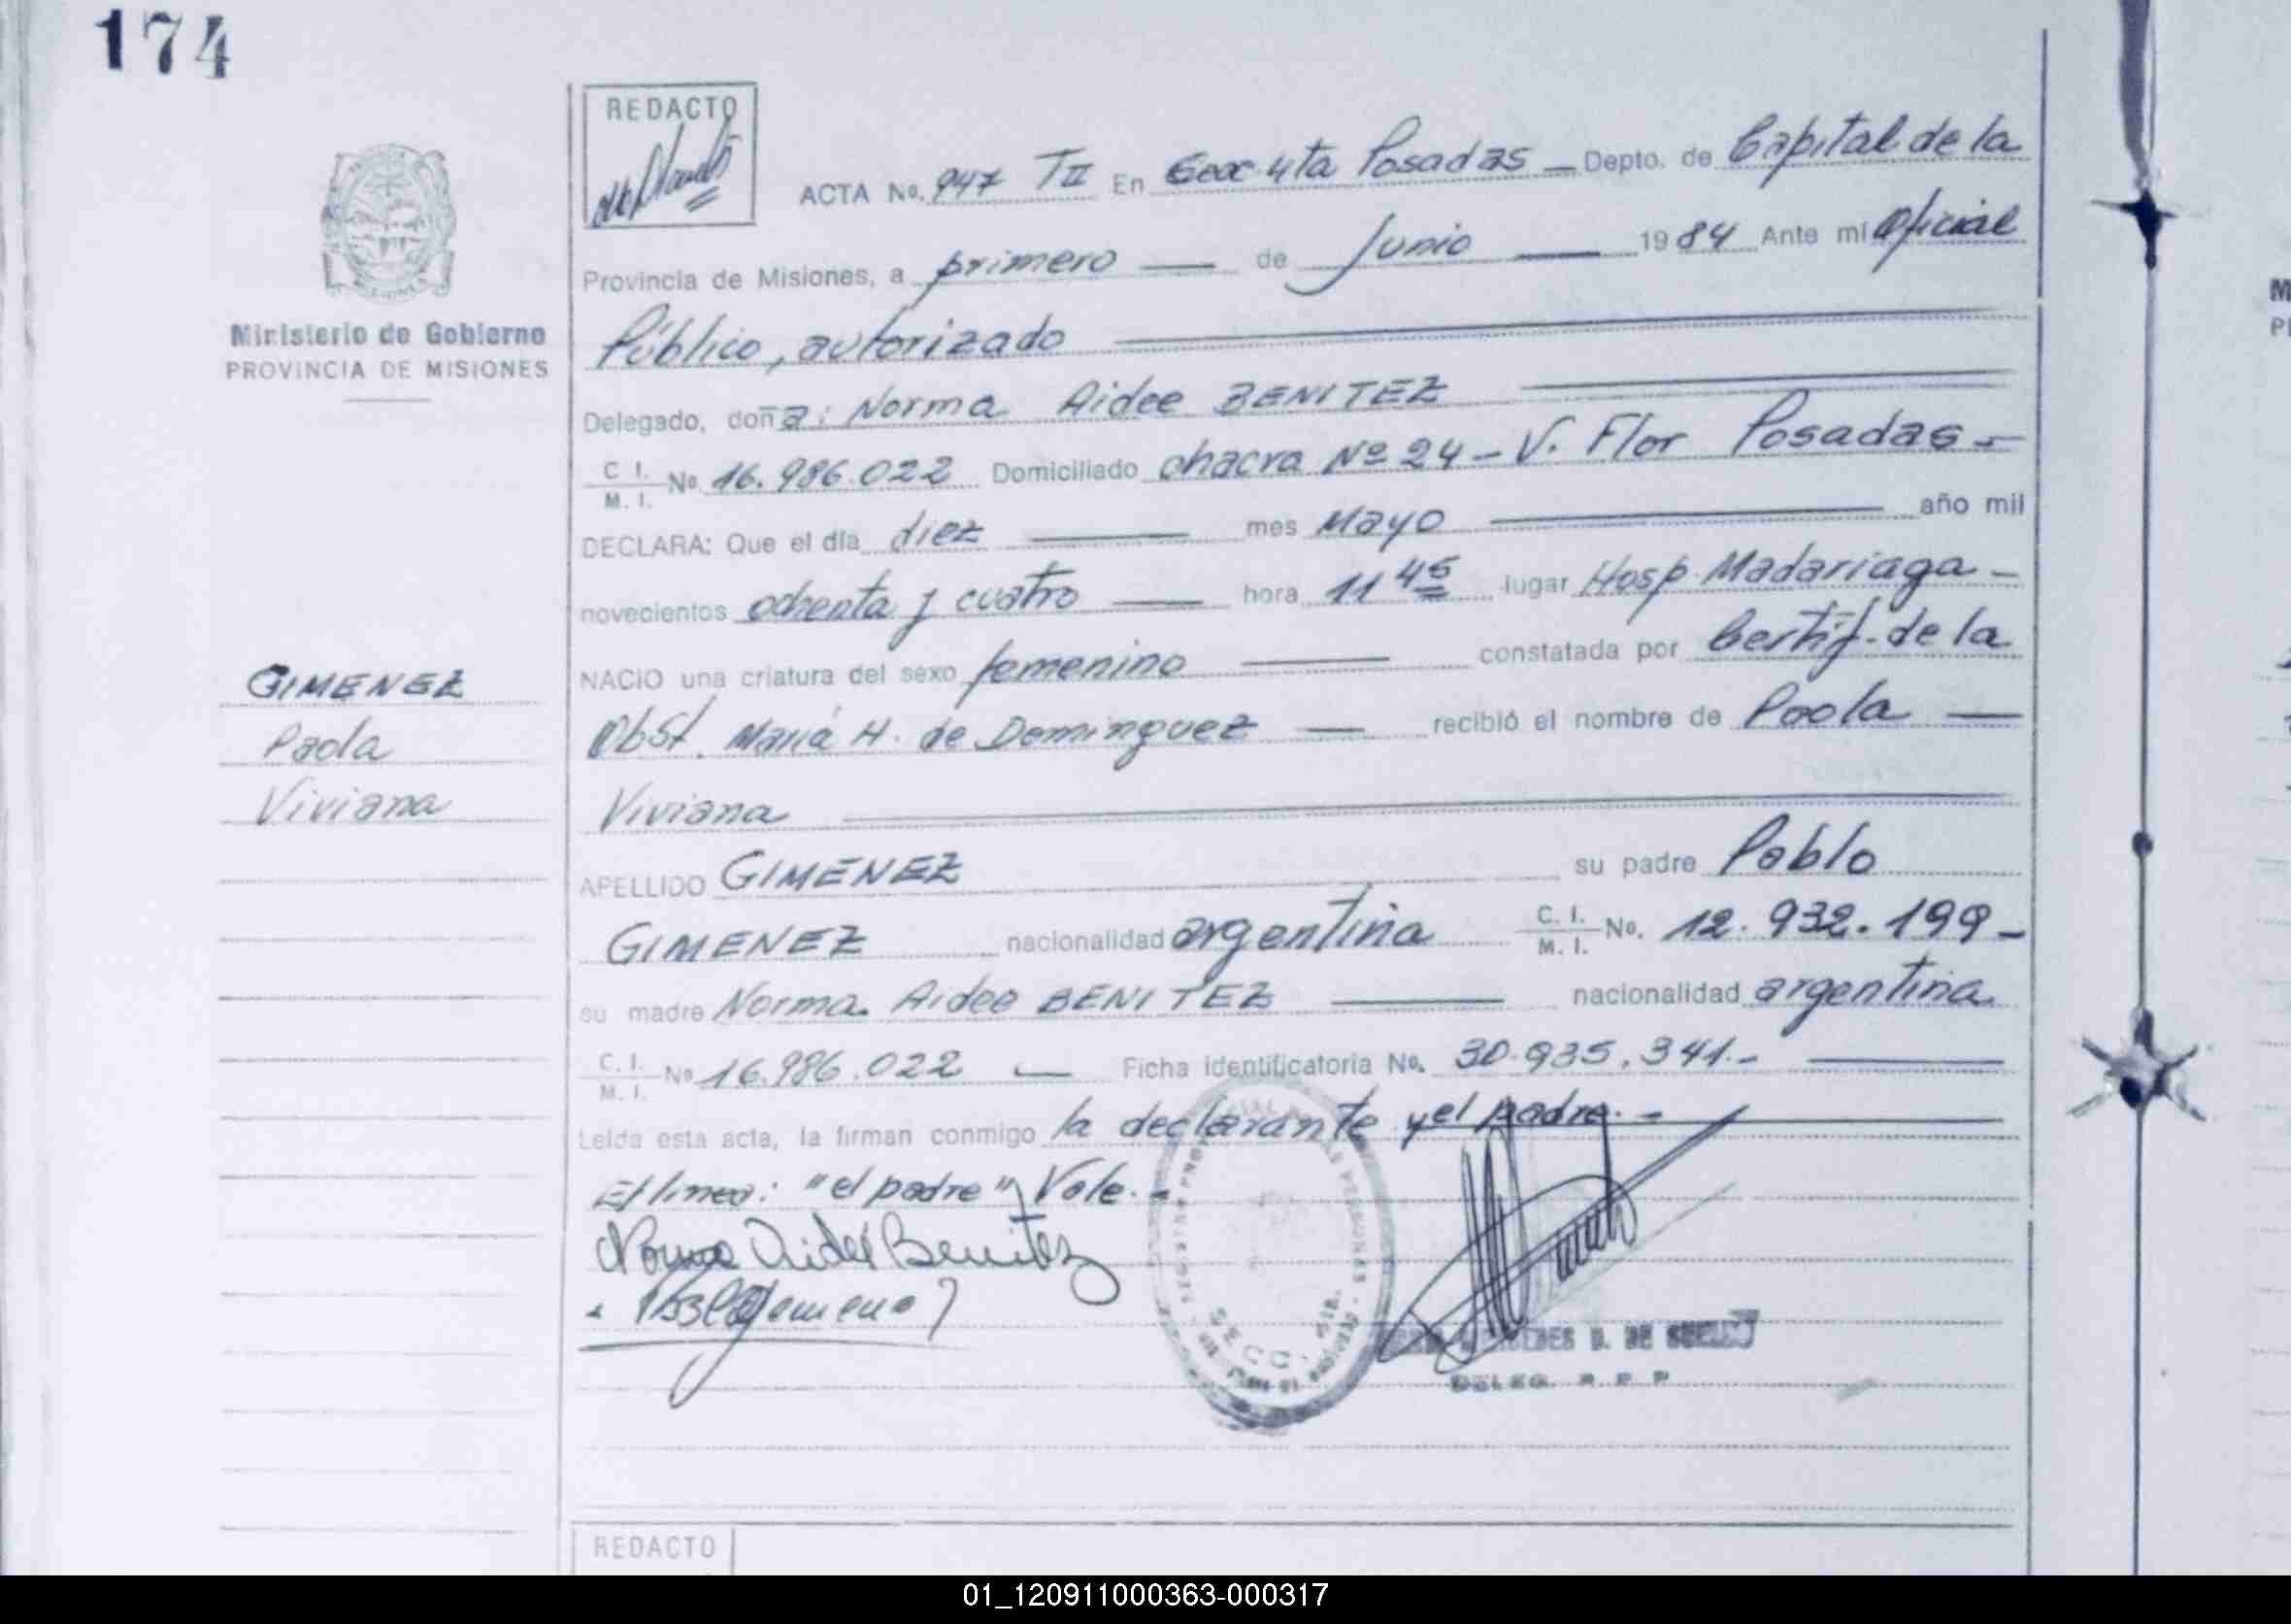 174
REDACTO
ACTA No. 947 TII En Secc 4ta Posadas — Depto. de Capital de la
Provincia de Misiones, a primero — de Junio — 1984 Ante mi Oficial
Ministerio de Gobierno
PROVINCIA DE MISIONES
Público, autorizado
Delegado, doña: Norma Aidee BENITEZ
C. I. / M. I. No 16.986.022 Domiciliado chacra Nº 24 - V. Flor Posadas -
DECLARA: Que el día diez — mes Mayo — año mil
novecientos ochenta y cuatro — hora 11 45 lugar Hosp. Madariaga -
NACIO una criatura del sexo femenino — constatada por Certif. de la
Obst. María H. de Dominguez — recibió el nombre de Paola —
Viviana
GIMENEZ
Paola
Viviana
APELLIDO GIMENEZ su padre Pablo
GIMENEZ nacionalidad argentina C. I. / M. I. No. 12.932.199 -
su madre Norma Aidee BENITEZ — nacionalidad argentina
C. I. / M. I. No 16.986.022 — Ficha identificatoria No. 30.935.341.-
Leida esta acta, la firman conmigo la declarante y el padre.-
E/linea: "el padre" Vale.-
Norma Aidee Benitez
D. DE
DELEG. R P P
SECC. 4ta.
REDACTO
01_120911000363-000317